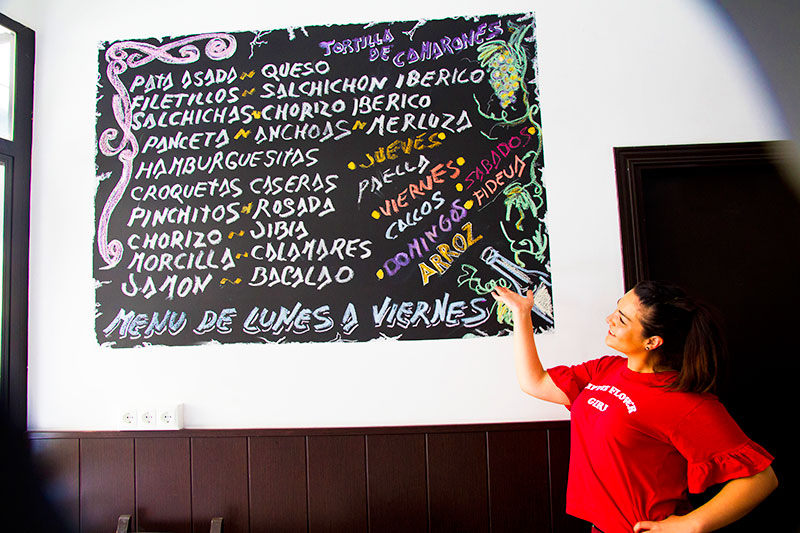 TORTILLA
DE CAMARONES
PATA ASADA ~ QUESO
FILETILLOS ~ SALCHICHON IBERICO
SALCHICHAS ~ CHORIZO IBERICO
PANCETA ~ ANCHOAS ~ MERLUZA
HAMBURGUESITAS
CROQUETAS CASERAS
PINCHITOS ~ ROSADA
CHORIZO ~ JIBIA
MORCILLA ~ CALAMARES
JAMON ~ BACALAO
• JUEVES •
PAELLA
• VIERNES •
CALLOS
• DOMINGOS •
ARROZ
• SABADOS •
FIDEUA
MENU DE LUNES A VIERNES
FLOWER